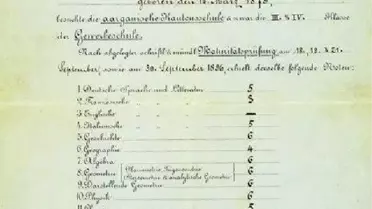 geboren den 14. März 1879,
besuchte die aargauische Kantonsschule & zwar die III. & IV. Klasse
der Gewerbeschule.
Nach abgelegter schriftl. & mündl. Maturitätsprüfung am 18., 19. & 21.
September, sowie am 30. September 1896, erhielt derselbe folgende Noten:
1. Deutsche Sprache und Litteratur 5
2. Französische " " " 3
3. Englische " " " —
4. Italienische " " " 5
5. Geschichte 6
6. Geographie 4
7. Algebra 6
8. Geometrie (Planimetrie, Trigonometrie, Stereometrie & analytische Geometrie) 6
9. Darstellende Geometrie 6
10. Physik 6